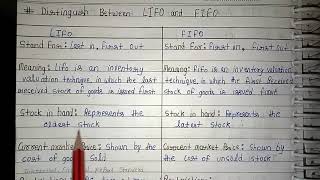 # Distinguish Between LIFO and FIFO
LIFO
FIFO
Stand For: Last in, First Out
Stand For: First in, First Out
Meaning: Lifo is an inventory
valuation technique, in which the last
received stock of goods is issued first
Meaning: Fifo is an inventory valuation
technique, in which the first received
stock of goods is issued first
Stock in hand: Represents the
oldest stock
Stock in hand: Represents the
latest stock
Current market Price: Shown by the
cost of goods sold
Current market Price: Shown by
the cost of unsold stock